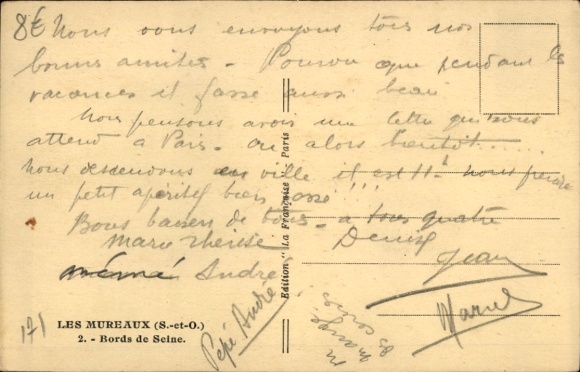 8€ Nous vous envoyons tous nos
bonnes amitiés - Pourvu que pendant les
vacances il fasse aussi beau
Nous pensons avoir une lettre qui nous
attend à Paris - ou alors bientôt.....
nous descendons en ville il est 11h nous prendre
un petit apéritif bien !!!
Bons baisers de tous - a tous quatre
Marie Thérèse Denise
mémé André Jean
Pépé André Marcel
Edition "La Française" Paris
LES MUREAUX (S.-et-O.)
2. - Bords de Seine.
171